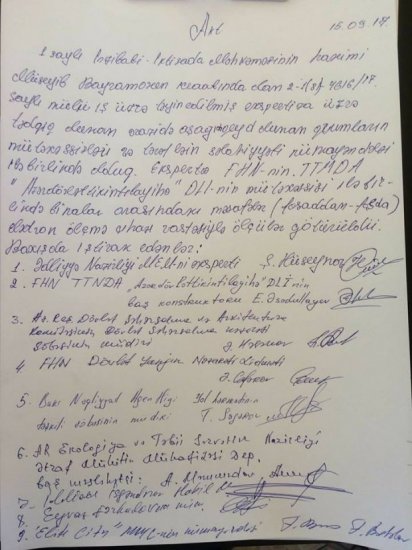 Akt 15.09.17
1 saylı İnzibati-İqtisadi Məhkəməsinin hakimi
Müseyib Bayramovun icraatında olan 2-1(81)-4316/17
saylı mülki iş üzrə təyin edilmiş ekspertiza üzrə
tədqiq olunan ərazidə aşağıda qeyd olunan qurumların
mütəxəssisləri və tərəflərin səlahiyyətli nümayəndələri
ilə birlikdə olduq. Ekspertlə FHN-nin TTMDA
"Azərdövlətlikintilayihə" DLİ-nin mütəxəssisi ilə bir-
likdə binalar arasındakı məsafələr (fasaddan-fasada)
elektron ölçmə cihazı vasitəsilə ölçülər götürüldü.
Baxışda iştirak edənlər:
1. Ədliyyə Nazirliyi MEM-ni eksperti Ş. Hüseynov
2. FHN TTNDA Azərdövlətlikintilayihə" DLİ nin
baş konstruktoru E. Əsədullayev
3. Az. Res. Dövlət Şəhərsalma və Arxitektura
Komitəsinin Dövlət Şəhərsalma
şöbəsinin müdiri
4 FHN Dövlət Yanğın Nəzarəti Xidməti
Ə. Cəfərov
5. Bakı Nəqliyyat Agentliyi Yol hərəkətinin
təşkili şöbəsinin müdiri T.
6. AR Ekologiya və Təbii Sərvətlər Nazirliyi
Ətraf Mühitin Mühafizəsi Dep.
baş məsləhətçi: A. Məmmədov
7. İsgəndərov Habil
8. Eyvaz
9. "Elit City" MMC-nin nümayəndəsi